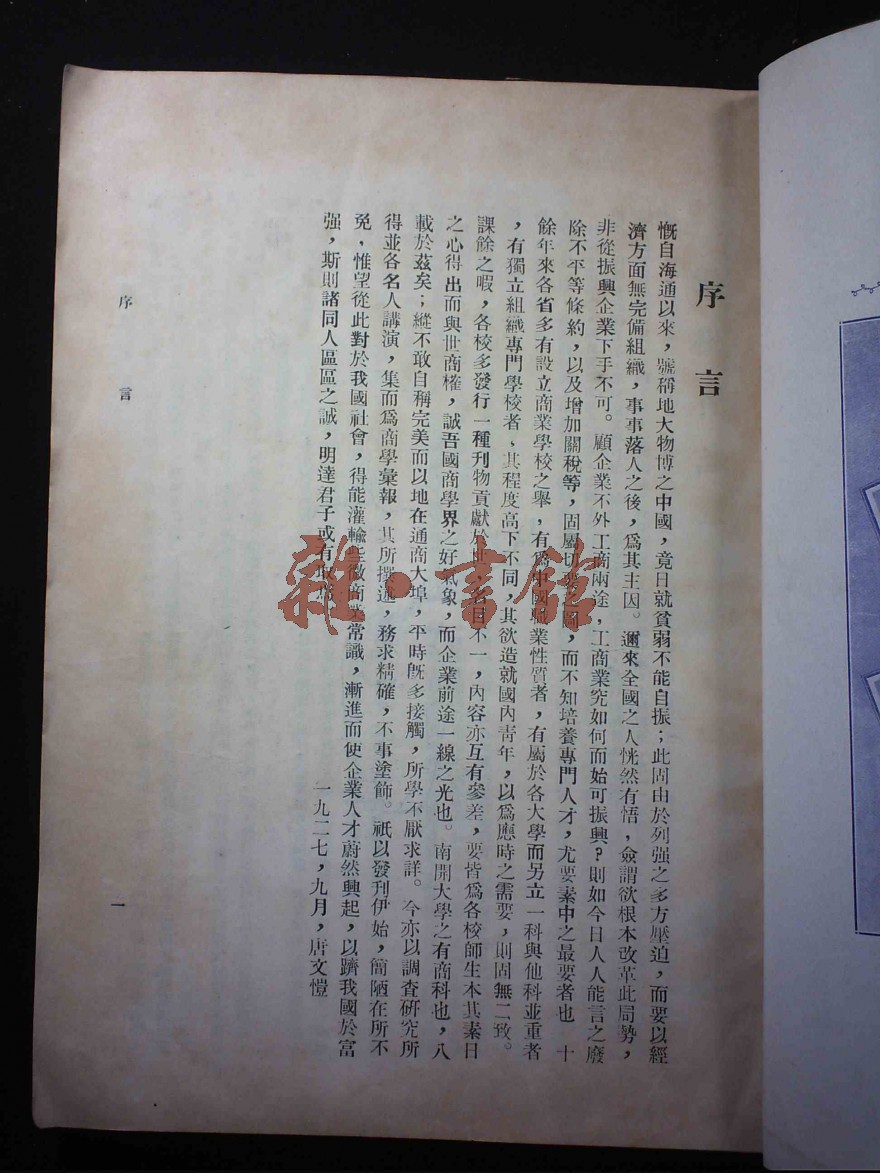 序言
慨自海通以來，號稱地大物博之中國，竟日就貧弱不能自振；此固由於列强之多方壓迫，而要以經
濟方面無完備組織，事事落人之後，爲其主因。邇來全國之人恍然有悟，僉謂欲根本改革此局勢，
非從振興企業下手不可。顧企業不外工商兩途，工商業究如何而始可振興？則如今日人人能言之廢
除不平等條約，以及增加關稅等，固屬切要之圖，而不知培養專門人才，尤要素中之最要者也　十
餘年來各省多有設立商業學校之舉，有爲中國職業性質者，有屬於各大學而另立一科與他科並重者
，有獨立組織專門學校者、其程度高下不同，其欲造就國內靑年，以爲應時之需要，則固無二致。
課餘之暇，各校多發行一種刊物貢獻於世，名目不一，內容亦互有參差，要皆爲各校師生本其素日
之心得出而與世商榷，誠吾國商學界之好氣象，而企業前途一線之光也。南開大學之有商科也，八
載於茲矣；縱不敢自稱完美而以地在通商大埠，平時旣多接觸，所學不厭求詳。今亦以調查研究所
得並各名人講演，集而爲商學彙報，其所撰述，務求精確，不事塗飾。祇以發刊伊始，簡陋在所不
免、惟望從此對於我國社會，得能灌輸些微商業常識，漸進而使企業人才蔚然興起，以躋我國於富
强，斯則諸同人區區之誠，明達君子或有取焉
一九二七，九月，唐文愷
序言
一
雜·書館